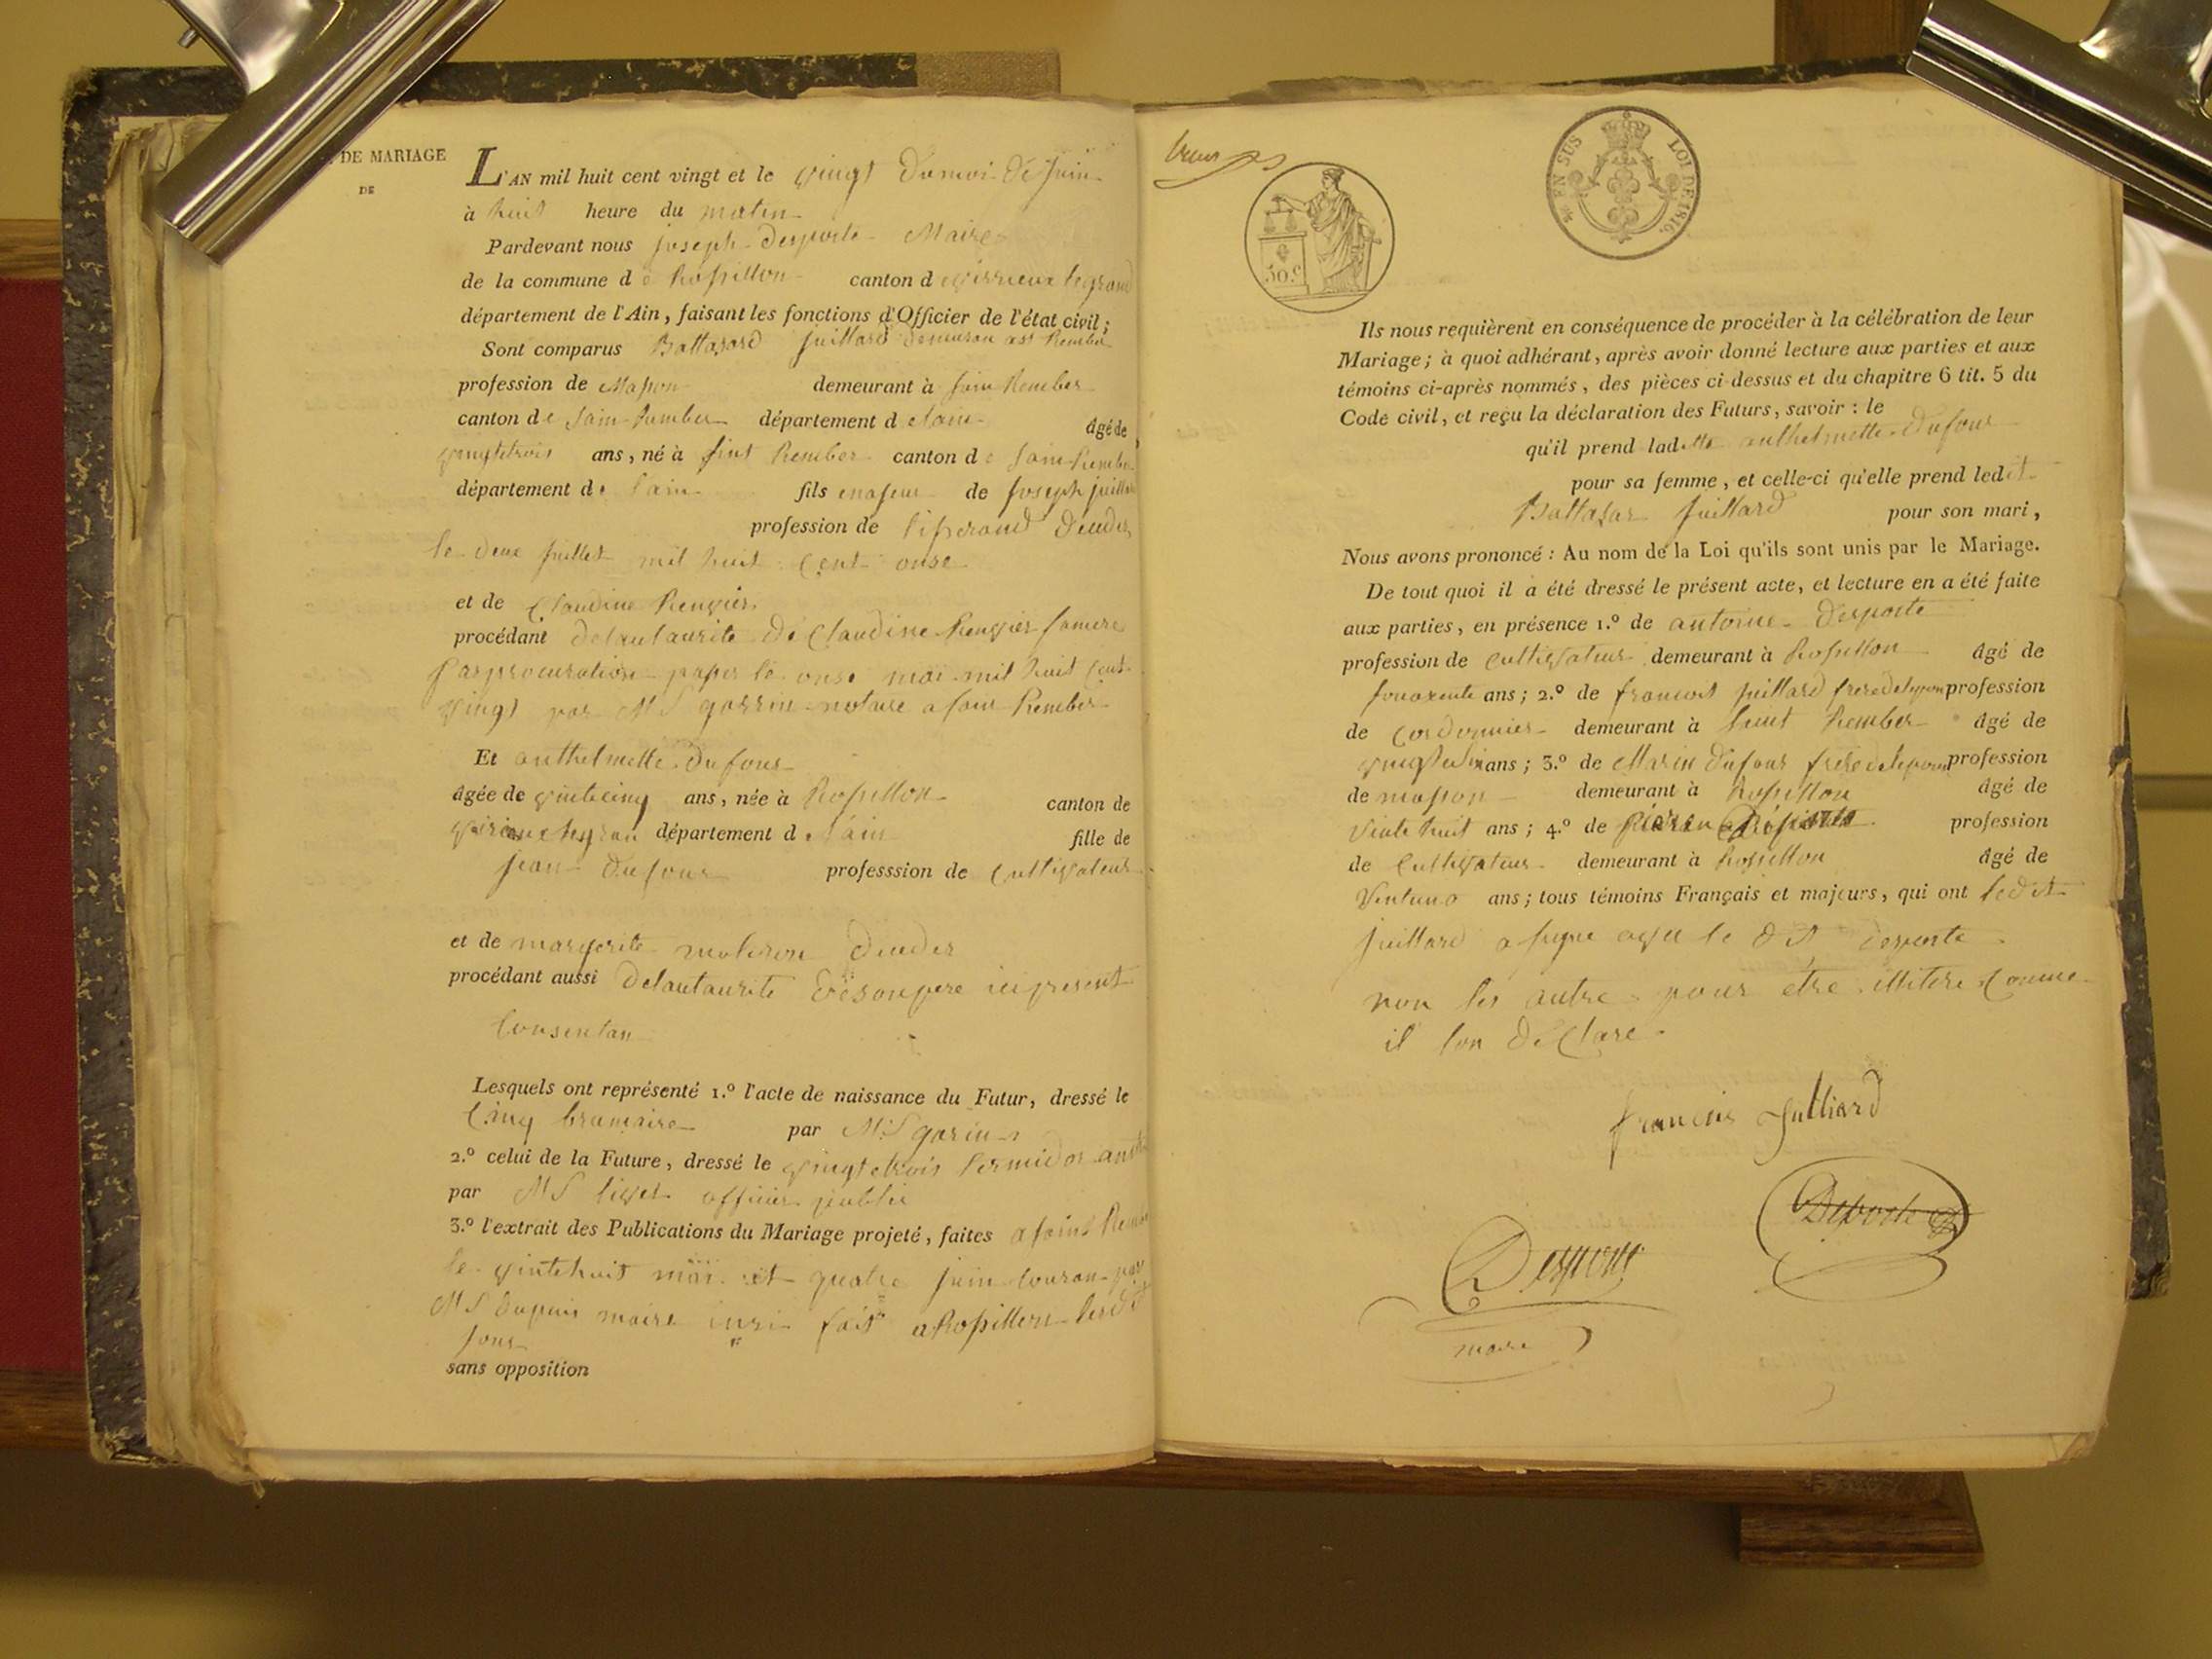 DE MARIAGE
DE
L'AN mil huit cent vingt et le vingt du moi de juin
à huit heure du matin
Pardevant nous joseph desporte Maire
de la commune de Rossillon canton de virrieux legrand
département de l'Ain, faisant les fonctions d'Officier de l'état civil;
Sont comparus Baltasard juillard demuran
profession de Masson demeurant à sain Rember
canton de sain Rember département de lain âgé de
vingtetrois ans, né à sint Rember canton de sain Rember
département de lain fils majeur de joseph juillard
profession de tisserand deudes
le deux juillet mil huit cent onse
et de Claudine Renvier
procédant delautaurite de Claudine Renvier samere
par procuration passer le onse mai mil huit cent
vingt par M.S garrin notaire a sain Rember
Et anthelmette Dufour
âgée de vinteciny ans, née à Rossillon canton de
département de lain fille de
jean Dufour professsion de Cultivateur
et de margerite moleron deudes
procédant aussi delautaurite de son pere ici present
Consentan
Lesquels ont représenté 1.º l'acte de naissance du Futur, dressé le
Cinq brumaire par M.S garin
2.º celui de la Future, dressé le vingtetrois termidor an
par M.S officier public
3.º l'extrait des Publications du Mariage projeté, faites a saint Rember
le vintehuit mai et quatre juin couran par
M.S Dupuis maire fait a Rossillon lesdit
jour
sans opposition
50.c
EN SUS LOI DE 1816.
Ils nous requièrent en conséquence de procéder à la célébration de leur
Mariage; à quoi adhérant, après avoir donné lecture aux parties et aux
témoins ci-après nommés, des pièces ci-dessus et du chapitre 6 tit. 5 du
Code civil, et reçu la déclaration des Futurs, savoir : le
qu'il prend laditte anthelmette Dufour
pour sa femme, et celle-ci qu'elle prend ledit
Baltasar juillard pour son mari,
Nous avons prononcé : Au nom de la Loi qu'ils sont unis par le Mariage.
De tout quoi il a été dressé le présent acte, et lecture en a été faite
aux parties, en présence 1.º de antoine desporte
profession de Cultivateur demeurant à Rossillon âgé de
souaxente ans; 2.º de francois juillard frere delepou profession
de Cordonnier demeurant à saint Rember âgé de
ans; 3.º de Marin Dufour frere delepouse profession
de masson demeurant à Rossillon âgé de
vinte huit ans; 4.º de pierre Desporte profession
de Cultivateur demeurant à Rossillon âgé de
ans; tous témoins Français et majeurs, qui ont ledit
juillard a signe avec le dit desporte
non les autre pour etre illitere comme
il lon declare
francois Julliard
Deporte
Desporte
maire